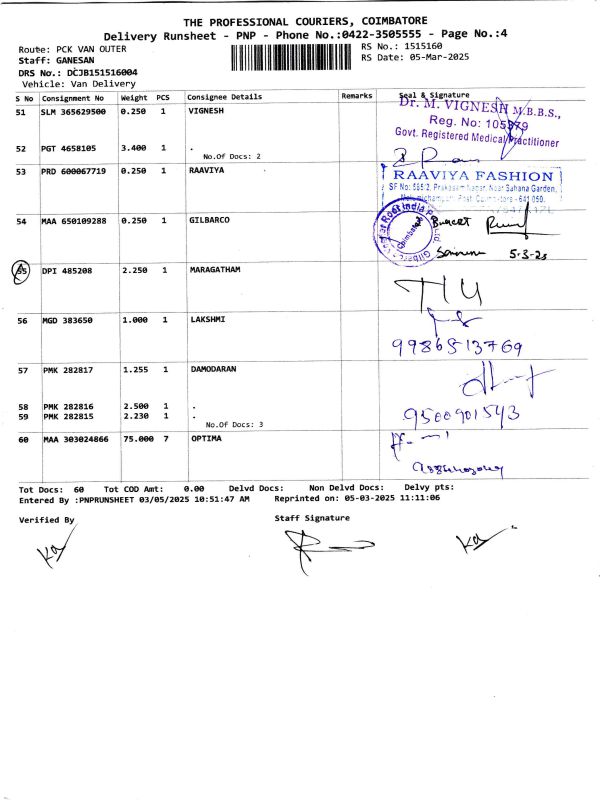 THE PROFESSIONAL COURIERS, COIMBATORE
Delivery Runsheet - PNP - Phone No.:0422-3505555 - Page No.:4
Route: PCK VAN OUTER
RS No.: 1515160
Staff: GANESAN
RS Date: 05-Mar-2025
DRS No.: DCJB151516004
Vehicle: Van Delivery
S No Consignment No Weight PCS Consignee Details Remarks Seal & Signature
51 SLM 365629500 0.250 1 VIGNESH
Dr. M. VIGNESH M.B.B.S.,
Reg. No: 105379
Govt. Registered Medical Practitioner
52 PGT 4658105 3.400 1 .
No.Of Docs: 2
53 PRD 600067719 0.250 1 RAAVIYA
RAAVIYA FASHION
SF No: 585/2, Prakasam Nagar, Near Sahana Garden,
Post, Coimbatore - 641 050.
54 MAA 650109288 0.250 1 GILBARCO
Coimbatore
5-3-25
55 DPI 485208 2.250 1 MARAGATHAM
56 MGD 383650 1.000 1 LAKSHMI
9986513769
57 PMK 282817 1.255 1 DAMODARAN
58 PMK 282816 2.500 1 .
59 PMK 282815 2.230 1 .
9500901543
No.Of Docs: 3
60 MAA 303024866 75.000 7 OPTIMA
Tot Docs: 60 Tot COD Amt: 0.00 Delvd Docs: Non Delvd Docs: Delvy pts:
Entered By :PNPRUNSHEET 03/05/2025 10:51:47 AM Reprinted on: 05-03-2025 11:11:06
Verified By
Staff Signature